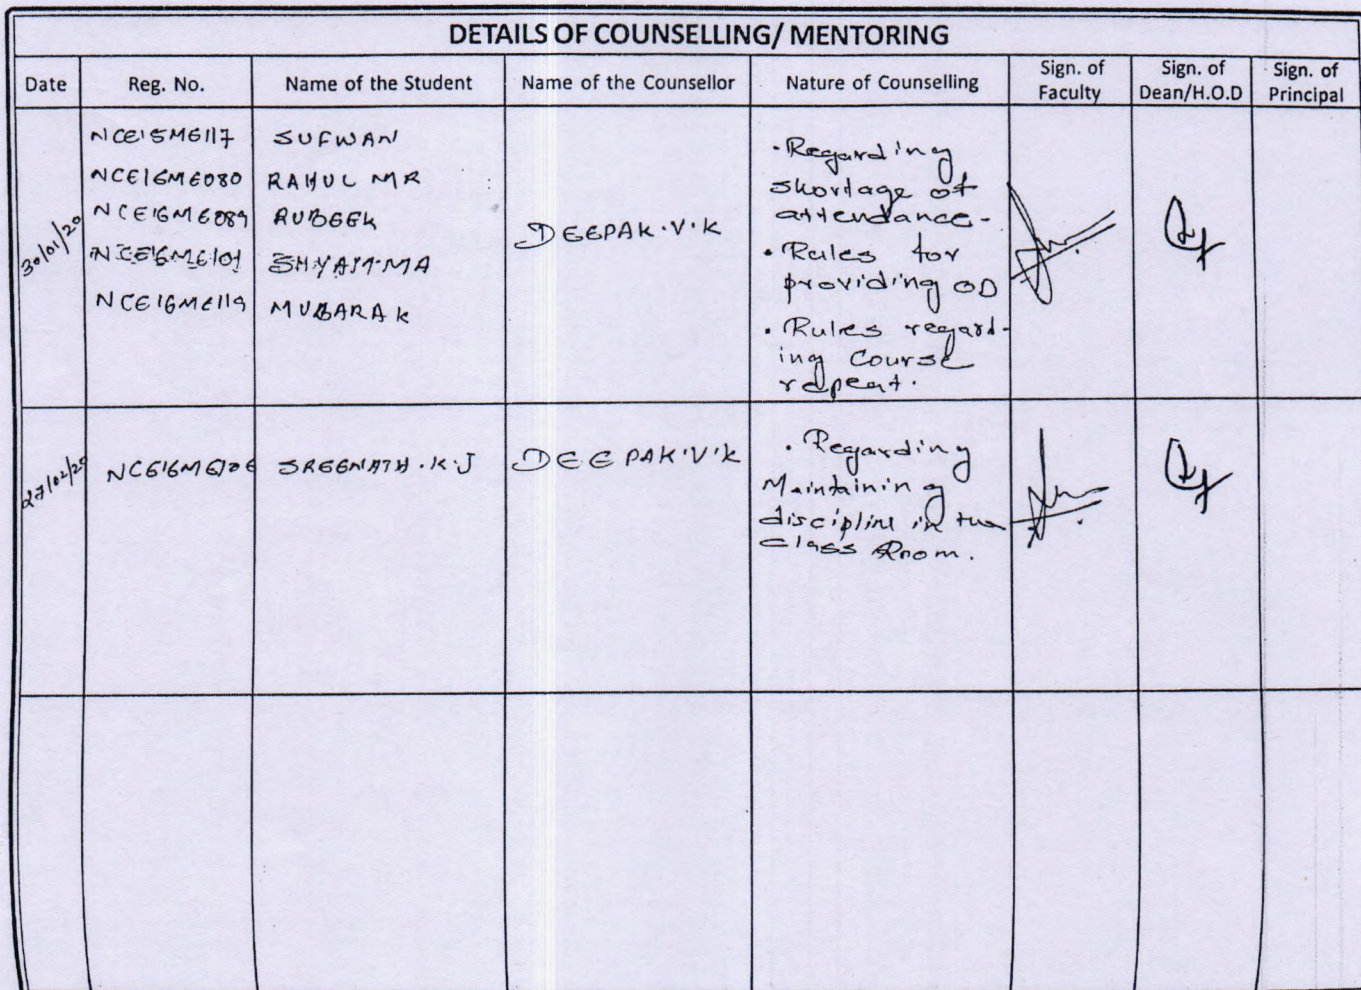 DETAILS OF COUNSELLING/ MENTORING
Date Reg. No. Name of the Student Name of the Counsellor Nature of Counselling Sign. of Faculty Sign. of Dean/H.O.D Sign. of Principal
30/01/20
NCE15ME117 SUFWAN
NCE16ME080 RAHUL MR
NCE16ME089 RUBEEK
NCE16ME101
NCE16ME119 MUBARAK
DEEPAK.V.K
• Regarding
shortage of
attendance.
• Rules for
providing OD
• Rules regard-
ing Course
repeat.
27/02/20
SREENATH.K.J
DEEPAK.V.K
• Regarding
Maintaining
discipline in the
Class Room.